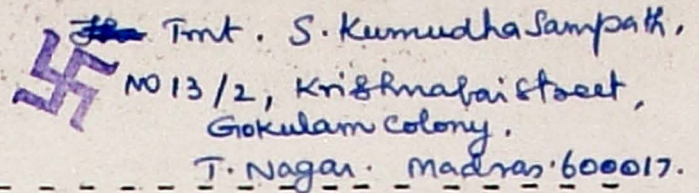 Tmt. S. Kumudha Sampath,
NO 13/2, Krishnabai Street,
Gokulam Colony.
T. Nagar. Madras. 600017.